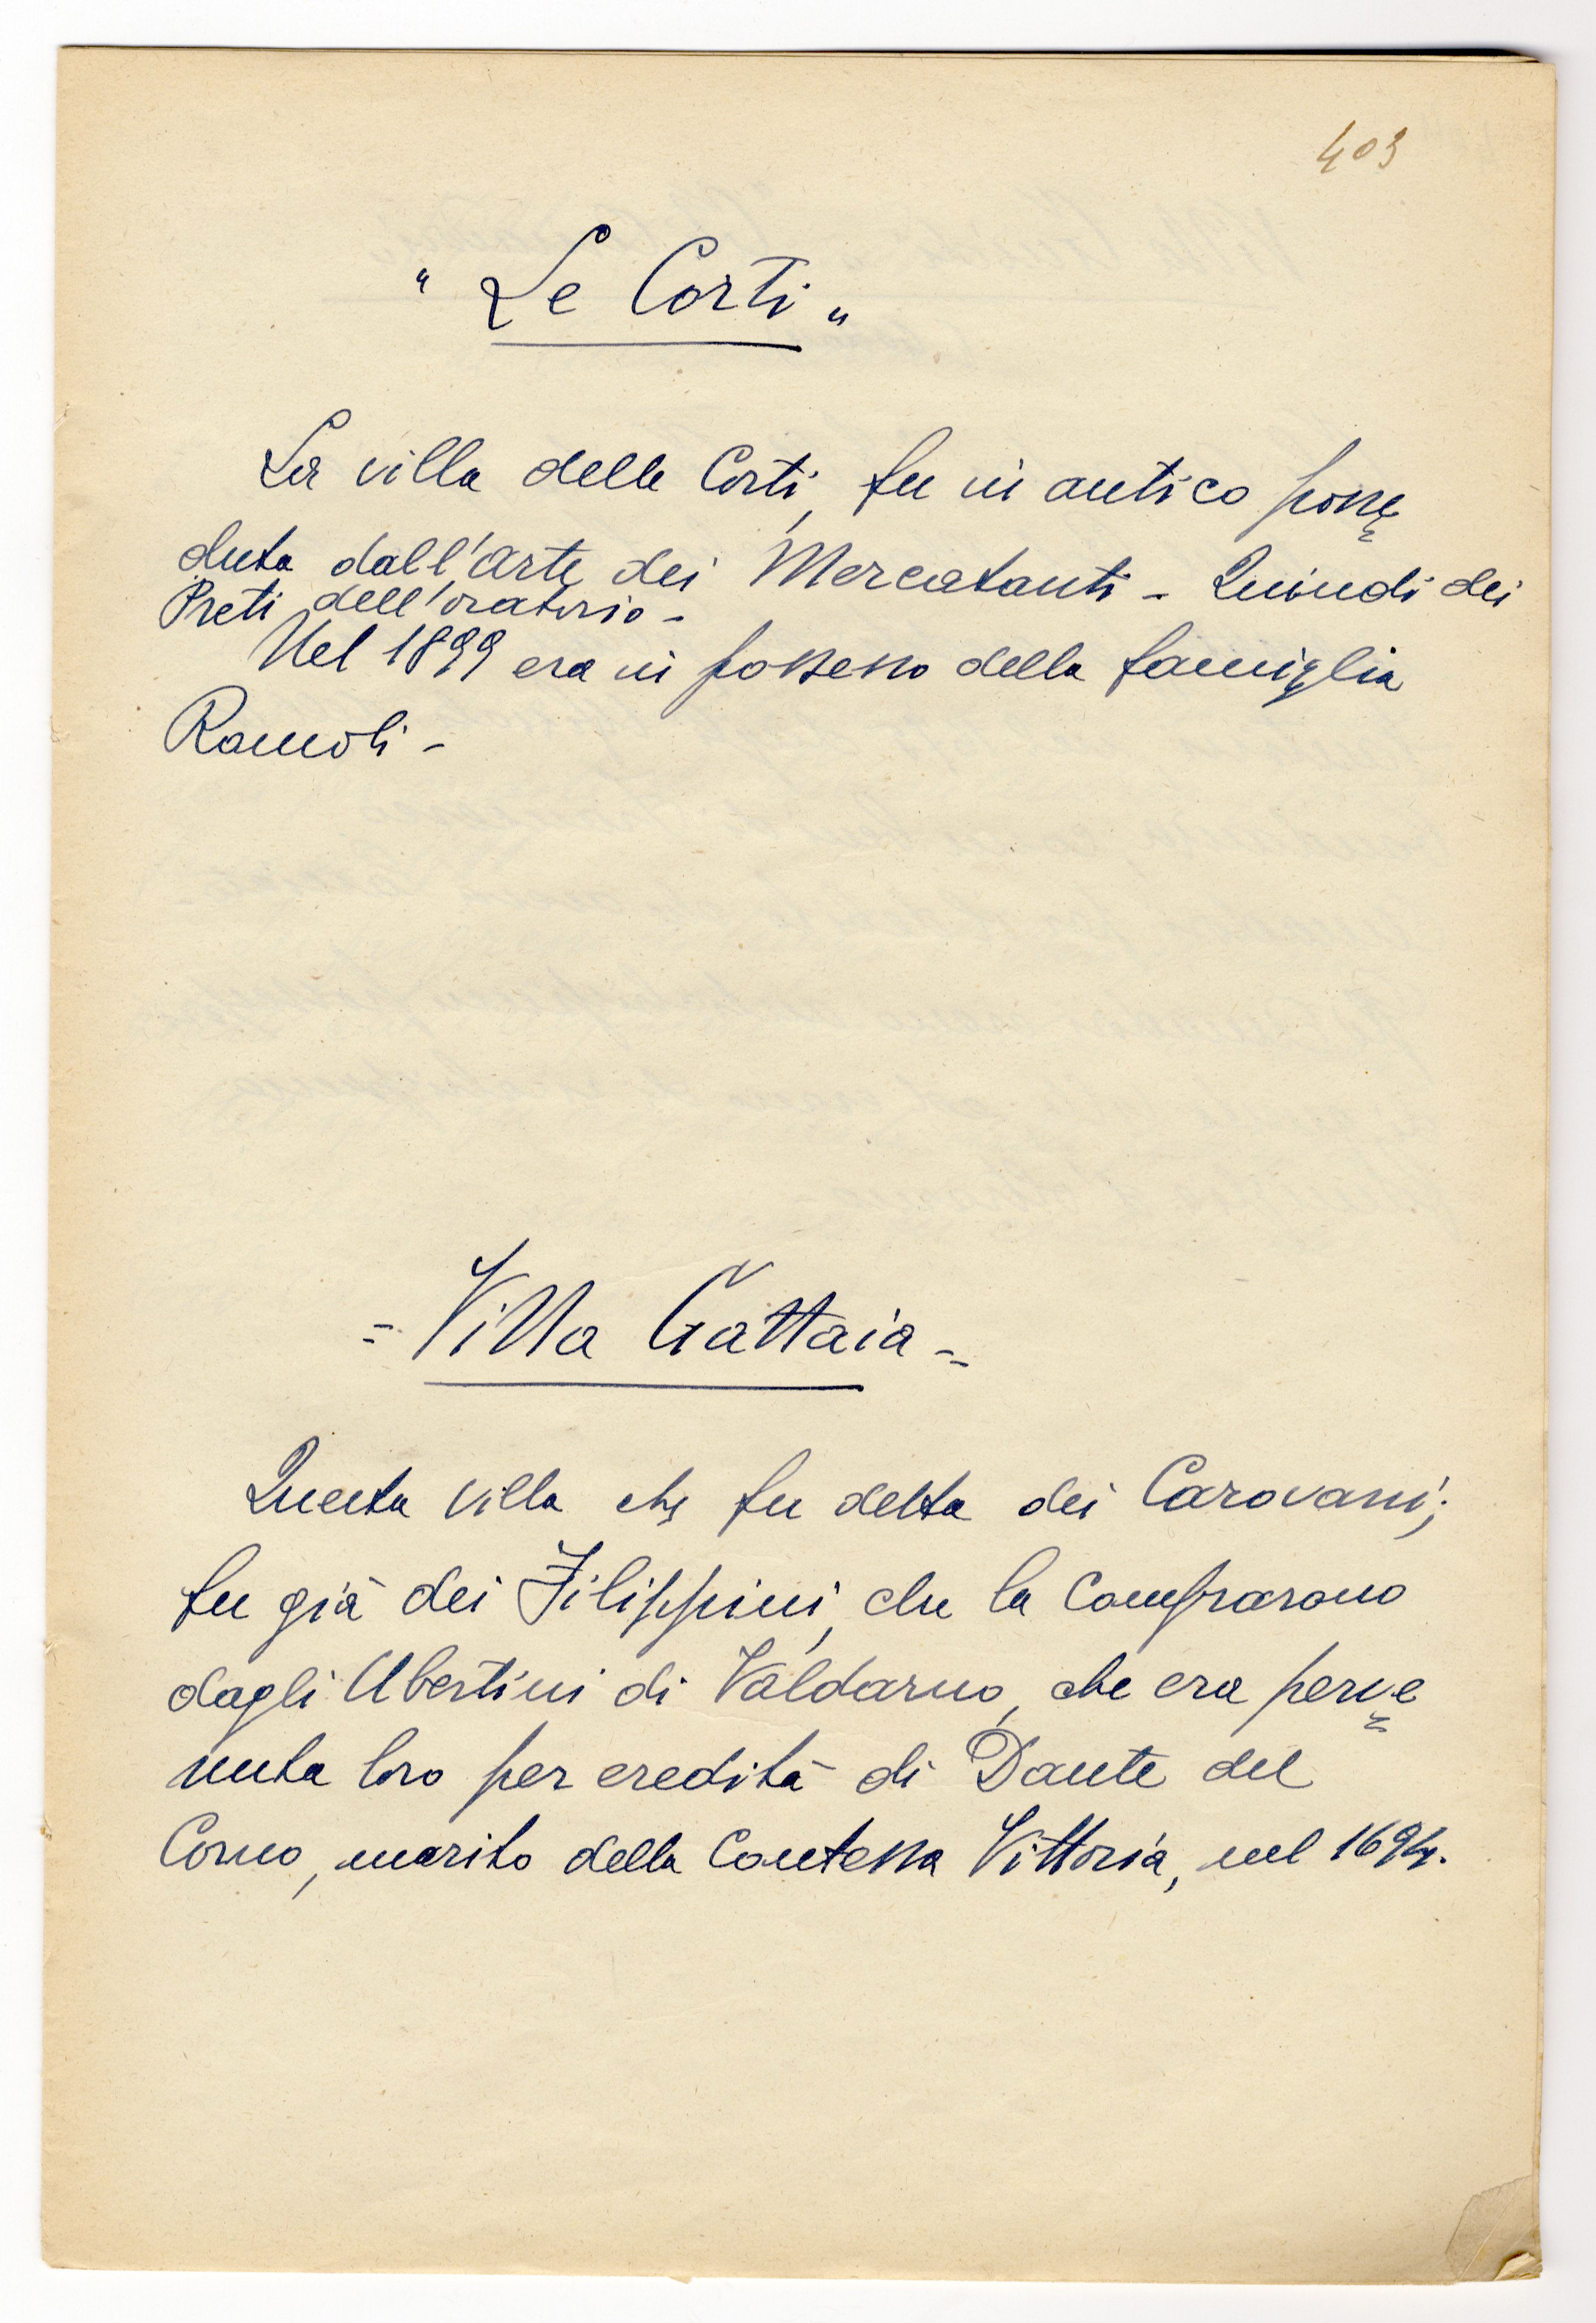 403
" Le Corti "
La villa delle Corti, fu in antico posse
duta dall'arte dei Mercatanti - Quindi dei
Preti dell'oratorio -
Nel 1899 era in possesso della famiglia
Ramoli -
= Villa Gattaia =
Questa villa che fu detta dei Carovani;
fu già dei Filippini, che la comprarono
dagli Ubertini di Valdarno, che era perve
nuta loro per eredità di Dante del
Corno, marito della Contessa Vittoria, nel 1694.